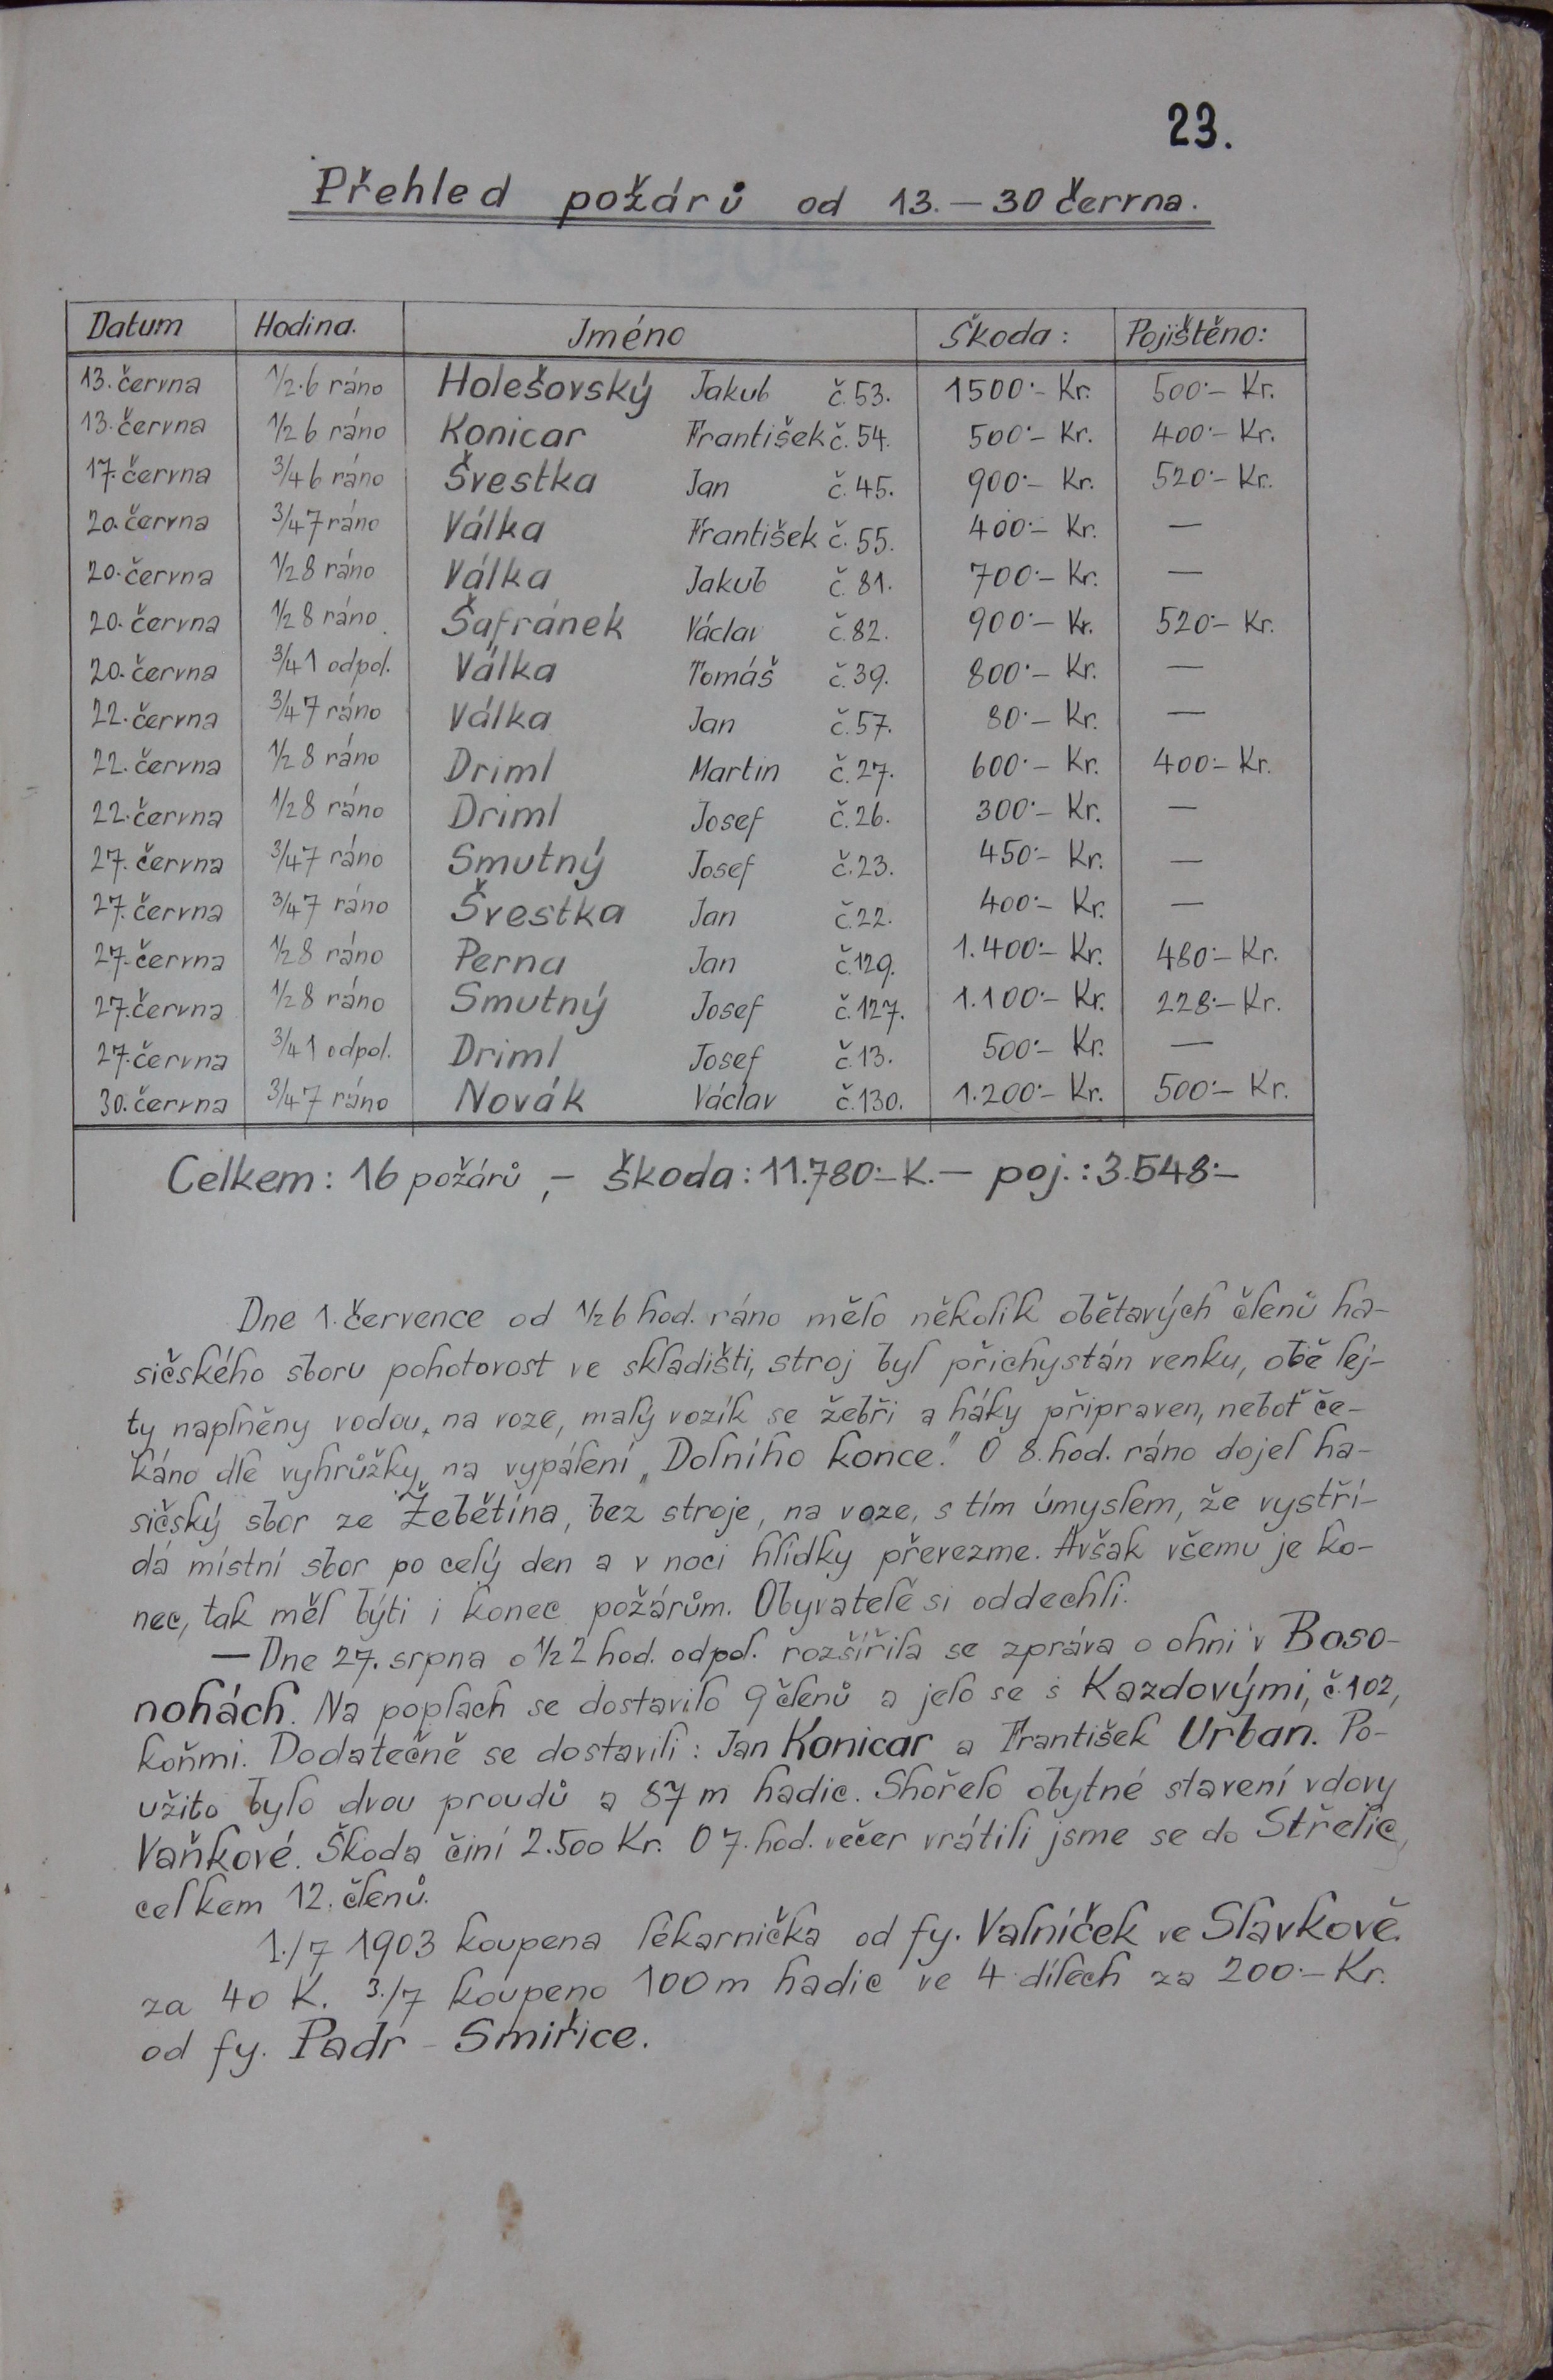 23.
Přehled požárů od 13. — 30 června.
Datum Hodina. Jméno Škoda: Pojištěno:
13. června 1/2.6 ráno Holešovský Jakub č.53. 1500·– Kr. 500·– Kr.
13. června 1/2 6 ráno Konicar František č.54. 500·– Kr. 400·– Kr.
17. června 3/4 6 ráno Švestka Jan č.45. 900·– Kr. 520·– Kr.
20. června 3/4 7 ráno Válka František č.55. 400·– Kr. —
20. června 1/2 8 ráno Válka Jakub č.81. 700·– Kr. —
20. června 1/2 8 ráno Šafránek Václav č.82. 900·– Kr. 520·– Kr.
20. června 3/4 1 odpol. Válka Tomáš č.39. 800·– Kr. —
22. června 3/4 7 ráno Válka Jan č.57. 80·– Kr. —
22. června 1/2 8 ráno Driml Martin č.27. 600·– Kr. 400·– Kr.
22. června 1/2 8 ráno Driml Josef č.26. 300·– Kr. —
27. června 3/4 7 ráno Smutný Josef č.23. 450·– Kr. —
27. června 3/4 7 ráno Švestka Jan č.22. 400·– Kr. —
27. června 1/2 8 ráno Perna Jan č.129. 1.400·– Kr. 480·– Kr.
27. června 1/2 8 ráno Smutný Josef č.127. 1.100·– Kr. 228·– Kr.
27. června 3/4 1 odpol. Driml Josef č.13. 500·– Kr. —
30. června 3/4 7 ráno Novák Václav č.130. 1.200·– Kr. 500·– Kr.
Celkem: 16 požárů,– škoda: 11.780·– K. — poj.: 3.548·–
Dne 1. července od 1/2 6 hod. ráno mělo několik obětavých členů ha-
sičského sboru pohotovost ve skladišti, stroj byl přichystán venku, obě lej-
ty naplněny vodou, na voze, malý vozík se žebři a háky připraven, neboť če-
káno dle vyhrůžky, na vypálení „Dolního konce." O 8. hod. ráno dojel ha-
sičský sbor ze Žebětína, bez stroje, na voze, s tím úmyslem, že vystří-
dá místní sbor po celý den a v noci hlídky převezme. Avšak všemu je ko-
nec, tak měl býti i konec požárům. Obyvatelé si oddechli.
— Dne 27. srpna o 1/2 2 hod. odpol. rozšířila se zpráva o ohni v Boso-
nohách. Na poplach se dostavilo 9 členů a jelo se s Kazdovými, č.102,
koňmi. Dodatečně se dostavili: Jan Konicar a František Urban. Po-
užito bylo dvou proudů a 87 m hadic. Shořelo obytné stavení vdovy
Vaňkové. Škoda činí 2.500 Kr. O 7. hod. večer vrátili jsme se do Střelic,
celkem 12. členů.
1./7 1903 koupena lékarnička od fy. Valníček ve Slavkově.
za 40 K. 3./7 koupeno 100 m hadic ve 4 dílech za 200·– Kr.
od fy. Padr – Smiřice.